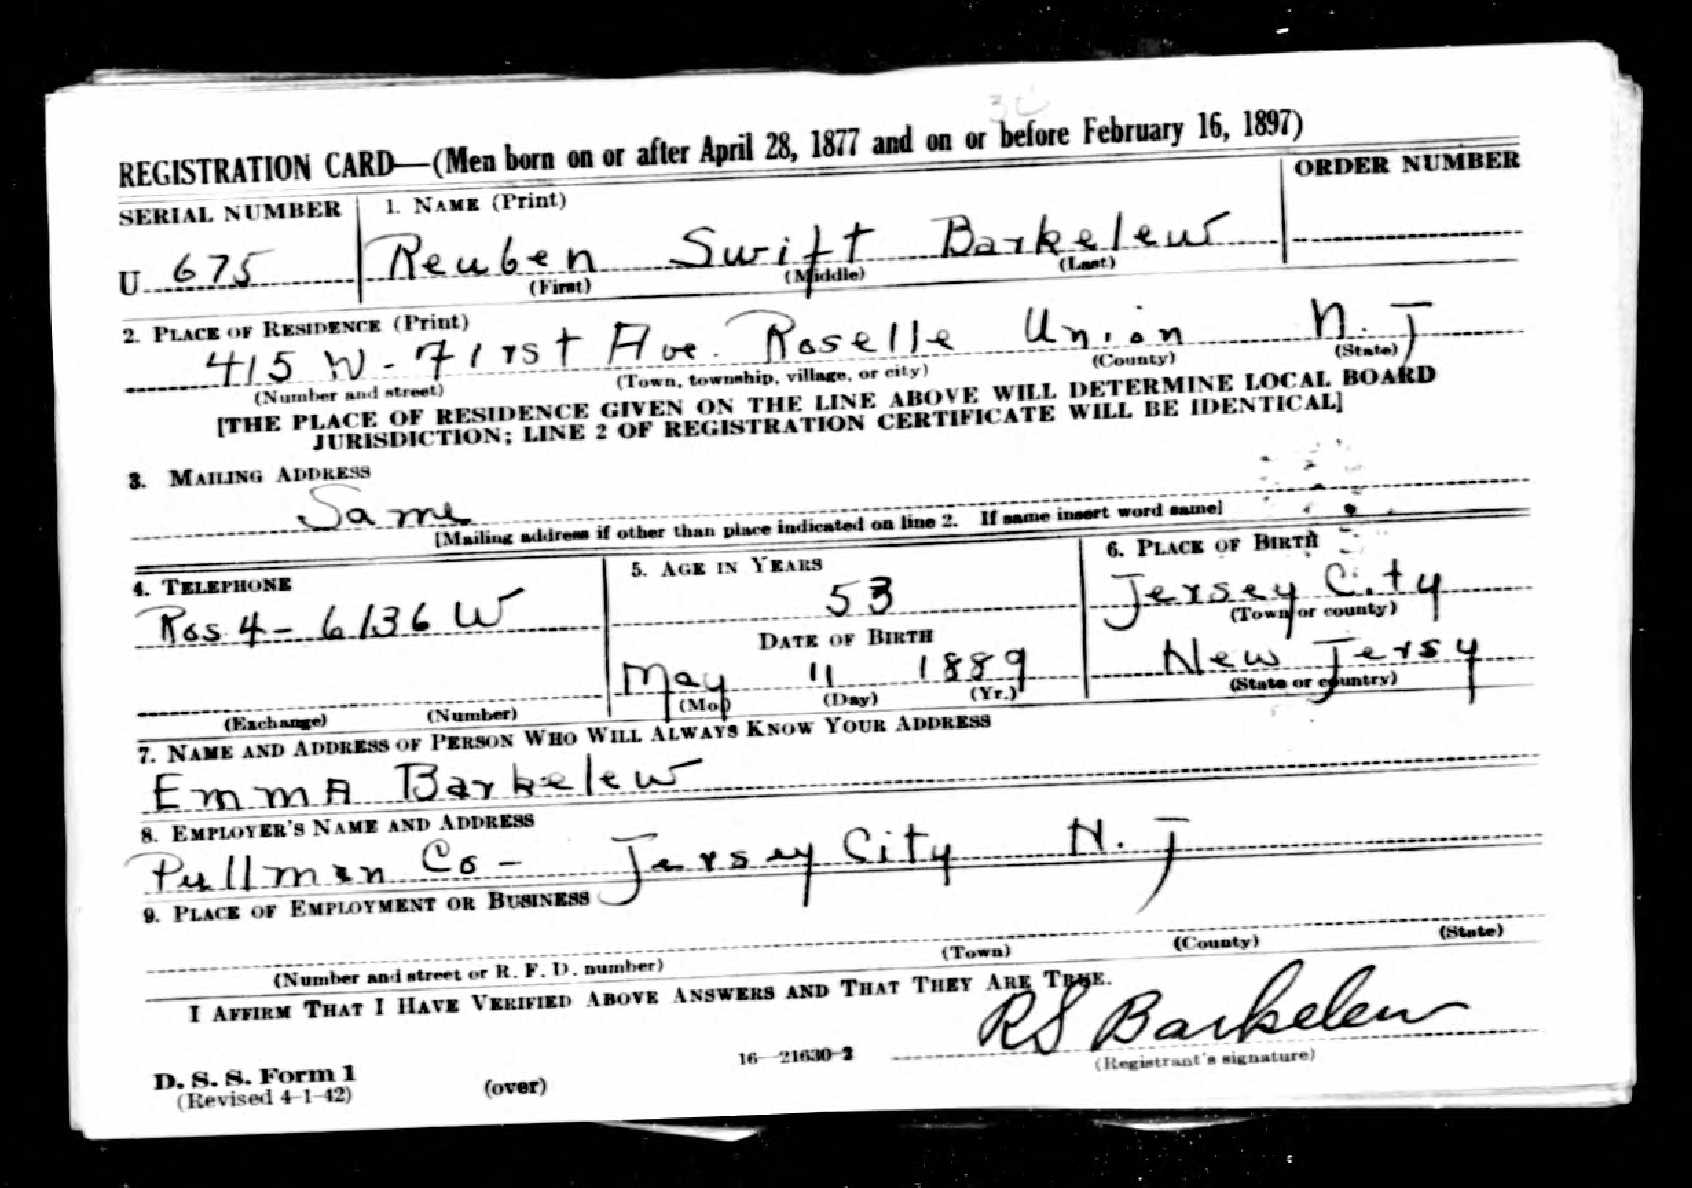 REGISTRATION CARD—(Men born on or after April 28, 1877 and on or before February 16, 1897)
SERIAL NUMBER 1. NAME (Print) ORDER NUMBER
U 675 Reuben Swift Barkelew
(First) (Middle) (Last)
2. PLACE OF RESIDENCE (Print)
415 W - First Ave. Roselle Union N. J
(Number and street) (Town, township, village, or city) (County) (State)
[THE PLACE OF RESIDENCE GIVEN ON THE LINE ABOVE WILL DETERMINE LOCAL BOARD
JURISDICTION; LINE 2 OF REGISTRATION CERTIFICATE WILL BE IDENTICAL]
3. MAILING ADDRESS
Same
[Mailing address if other than place indicated on line 2. If same insert word same]
4. TELEPHONE 5. AGE IN YEARS 6. PLACE OF BIRTH
Ros 4 - 6136 W 53 Jersey City
(Town or county)
DATE OF BIRTH
May 11 1889 New Jersy
(Exchange) (Number) (Mo.) (Day) (Yr.) (State or country)
7. NAME AND ADDRESS OF PERSON WHO WILL ALWAYS KNOW YOUR ADDRESS
Emma Barkelew
8. EMPLOYER'S NAME AND ADDRESS
Pullman Co - Jersey City N. J
9. PLACE OF EMPLOYMENT OR BUSINESS
(Number and street or R. F. D. number) (Town) (County) (State)
I AFFIRM THAT I HAVE VERIFIED ABOVE ANSWERS AND THAT THEY ARE TRUE.
RS Barkelew
D. S. S. Form 1 16—21630-2 (Registrant's signature)
(Revised 4-1-42) (over)